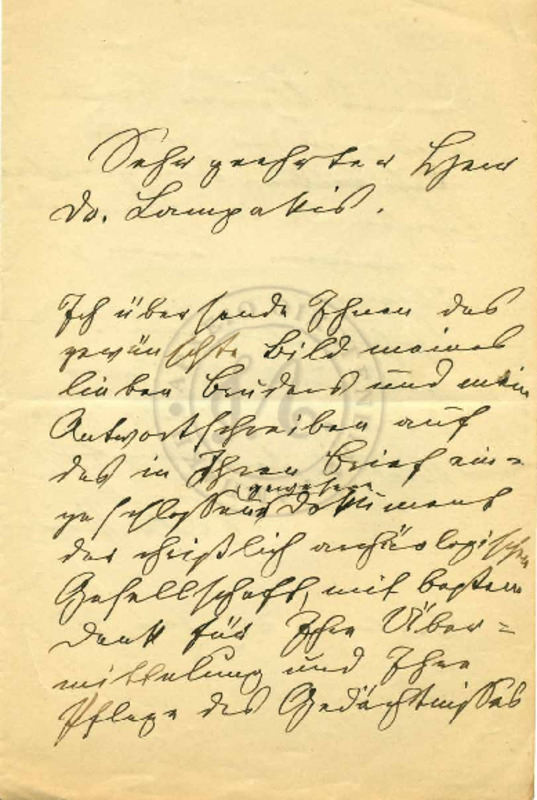 Sehr geehrter Herr
Dr. Lampakis.
Ich übersende Ihnen das
gewünschte Bild meines
lieben Bruders und mein
Antwortschreiben auf
das in Ihren Brief ein=
gewesene
geschlossene Dokument
der christlich archäologischen
Gesellschaft, mit bestem
Dank für Ihre Über=
mittelung und Ihre
Pflege des Gedächtnisses